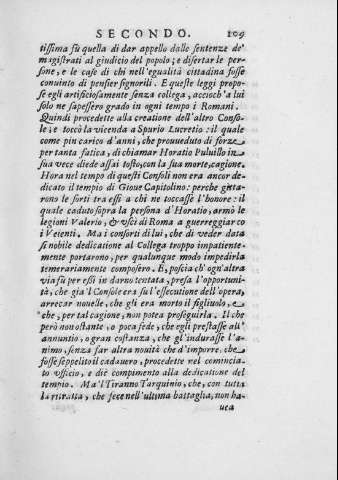 SECONDO. 109
tissima fù quella di dar appello dalle sentenze de'
magistrati al giudicio del popolo; e disertar le per-
sone, e le case di chi nell'egualità cittadina fosse
conuinto di pensier signorili. E queste leggi propo-
se egli artificiosamente senza collega, accioch'a lui
solo ne sapessero grado in ogni tempo i Romani.
Quindi procedette alla creatione dell'altro Conso-
le; e toccò la vicenda a Spurio Lucretio: il quale
come piu carico d'anni, che proueduto di forze
per tanta fatica, di chiamar Horatio Puluillo in
sua vece diede assai tosto, con la sua morte, cagione.
Hora nel tempo di questi Consoli non era ancor de-
dicato il tempio di Gioue Capitolino: perche gitta-
rono le sorti tra essi a chi ne toccasse l'honore: il
quale caduto sopra la persona d'Horatio, armò le
legioni Valerio, & vscì di Roma a guerreggiar co
i Veienti. Ma i consorti di lui, che di veder data
sì nobile dedicatione al Collega troppo impatiente-
mente portarono, per qualunque modo impedirla
temerariamente composero. E, poscia ch'ogn'altra
via fù per essi in darno tentata, presa l'opportuni-
tà, che già'l Consòle era sù l'essecutione dell'opera,
arrecar nouelle, che gli era morto il figliuolo, e
che, per tal cagione, non potea proseguirla. Il che
però non ostante, o poca fede, che egli prestasse all'
annuntio, o gran costanza, che gl'indurasse l'a-
nimo, senza far altra nouità che d'imporre, che
fosse seppelito il cadauero, procedette nel comincia-
to vfficio, e diè compimento alla dedicatione del
tempio. Ma'l Tiranno Tarquinio, che, con tutta
la ritratta, che fece nell'ultima battaglia, non ha-
uca